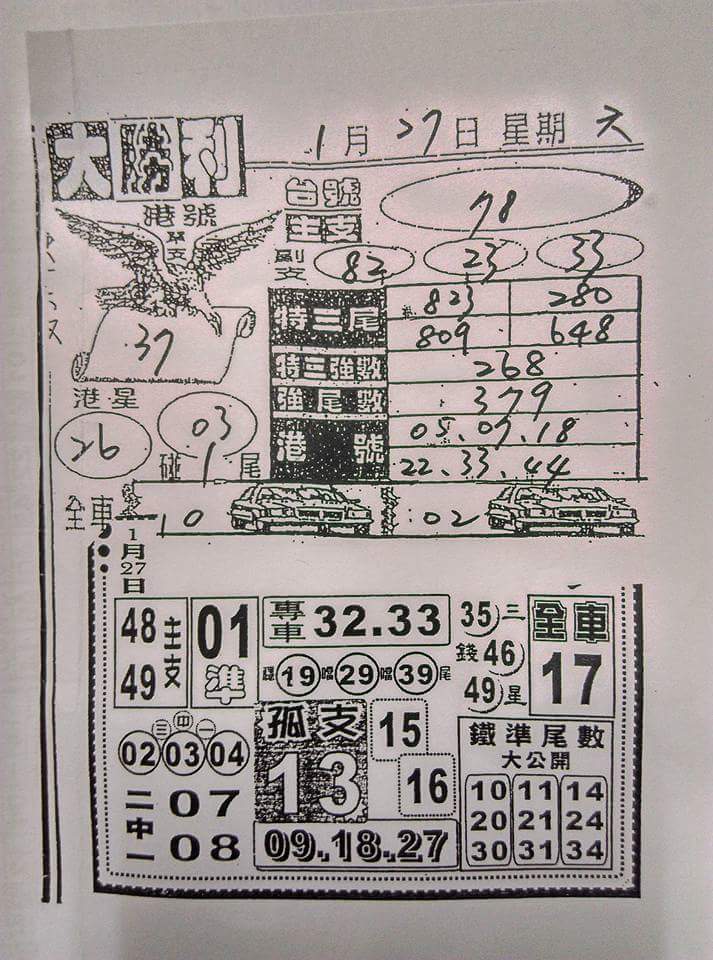 大勝利
1月27日星期天
港號
單支
37
港星
26
03
碰1尾
台號
78
主支
副支
82 23 33
特三尾
823 280
809 648
特三強數
268
強尾數
379
港號
05.09.18
22.33.44
全車
10 02
1月27日
48 49 主支
01 準
專車 32.33
19 29 39 尾
35 46 49 三錢星
全車 17
三中一
02 03 04
二中一
07
08
孤支
13
15
16
09.18.27
鐵準尾數
大公開
10 11 14
20 21 24
30 31 34